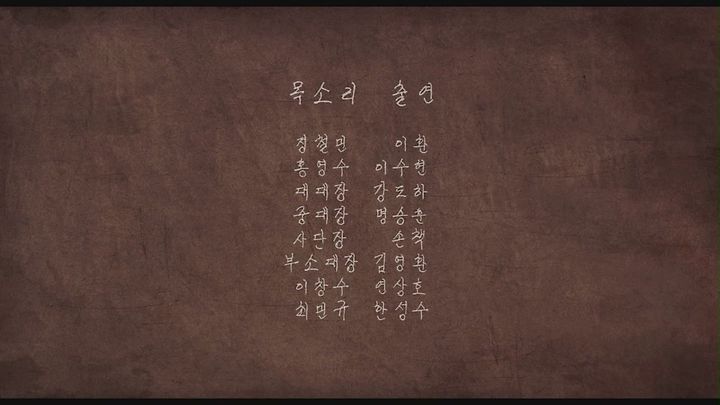 목소리 출연
정철민 이환
홍영수 이수현
대대장 강도하
중대장 명승윤
사단장 손책
부소대장 김영환
이창수 연상호
최민규 한성수